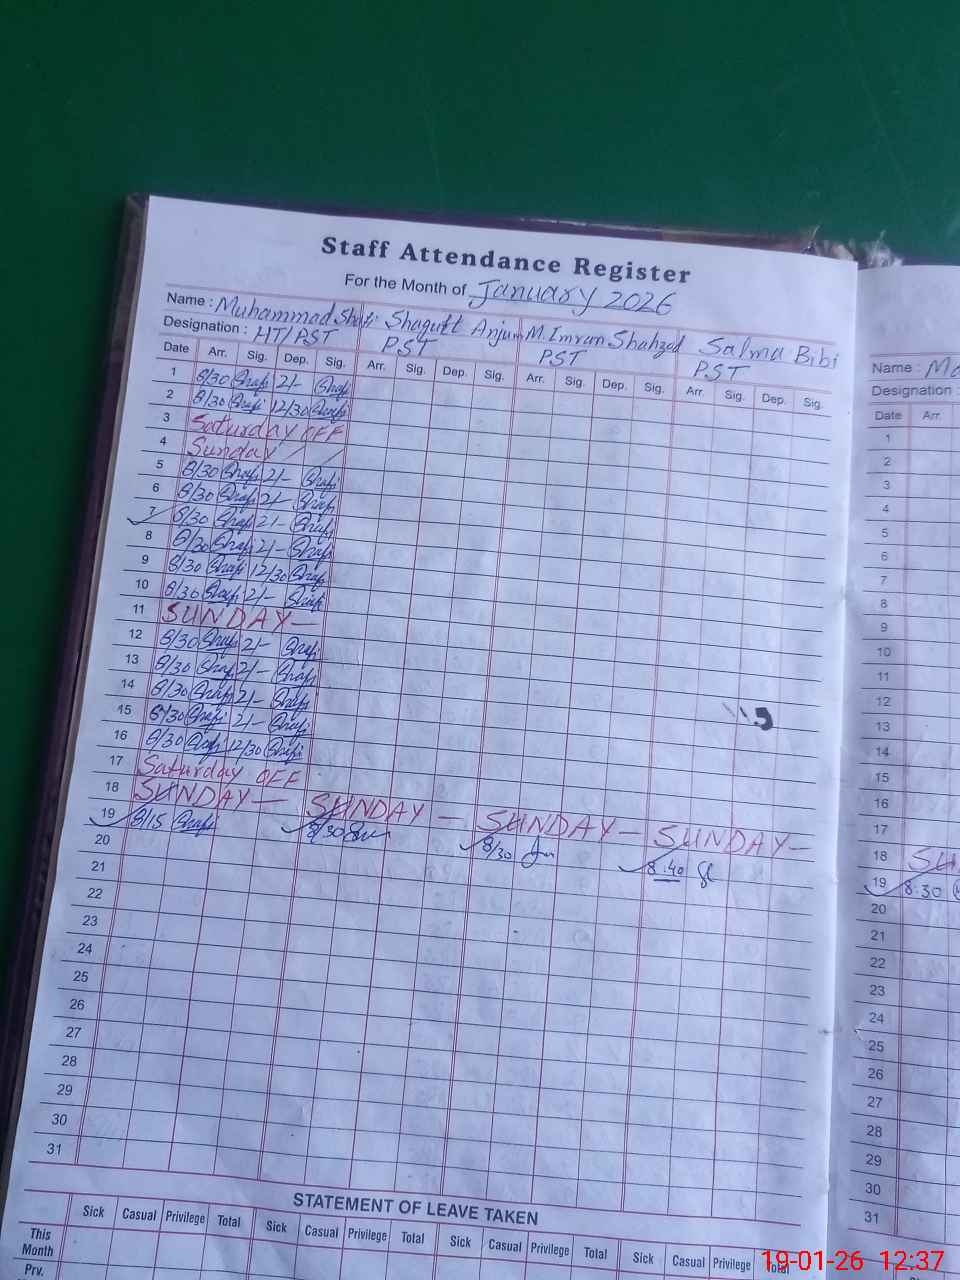 Staff Attendance Register
For the Month of January 2026
Name : Muhammad Shafi Shaguft Anjum M. Imran Shahzad Salma Bibi
Designation : HT/PST PST PST PST
Date Arr. Sig. Dep. Sig. Arr. Sig. Dep. Sig. Arr. Sig. Dep. Sig. Arr. Sig. Dep. Sig.
1 8/30 Shafi 2/- Shafi
2 8/30 Shafi 12/30 Shafi
3 Saturday OFF
4 Sunday
5 8/30 Shafi 2/- Shafi
6 8/30 Shafi 2/- Shafi
7 8/30 Shafi 2/- Shafi
8 8/30 Shafi 2/- Shafi
9 8/30 Shafi 12/30 Shafi
10 8/30 Shafi 2/- Shafi
11 SUNDAY —
12 8/30 Shafi 2/- Shafi
13 8/30 Shafi 2/- Shafi
14 8/30 Shafi 2/- Shafi
15 8/30 Shafi 2/- Shafi
16 8/30 Shafi 12/30 Shafi
17 Saturday OFF
18 SUNDAY — SUNDAY — SUNDAY — SUNDAY —
19 8/15 Shafi 8/30 8/30 8.40
20
21
22
23
24
25
26
27
28
29
30
31
STATEMENT OF LEAVE TAKEN
Sick Casual Privilege Total Sick Casual Privilege Total Sick Casual Privilege Total Sick Casual Privilege Total
This Month
Prv.
Name :
Designation :
Date Arr.
1
2
3
4
5
6
7
8
9
10
11
12
13
14
15
16
17
18
19 8.30
20
21
22
23
24
25
26
27
28
29
30
31
19-01-26 12:37